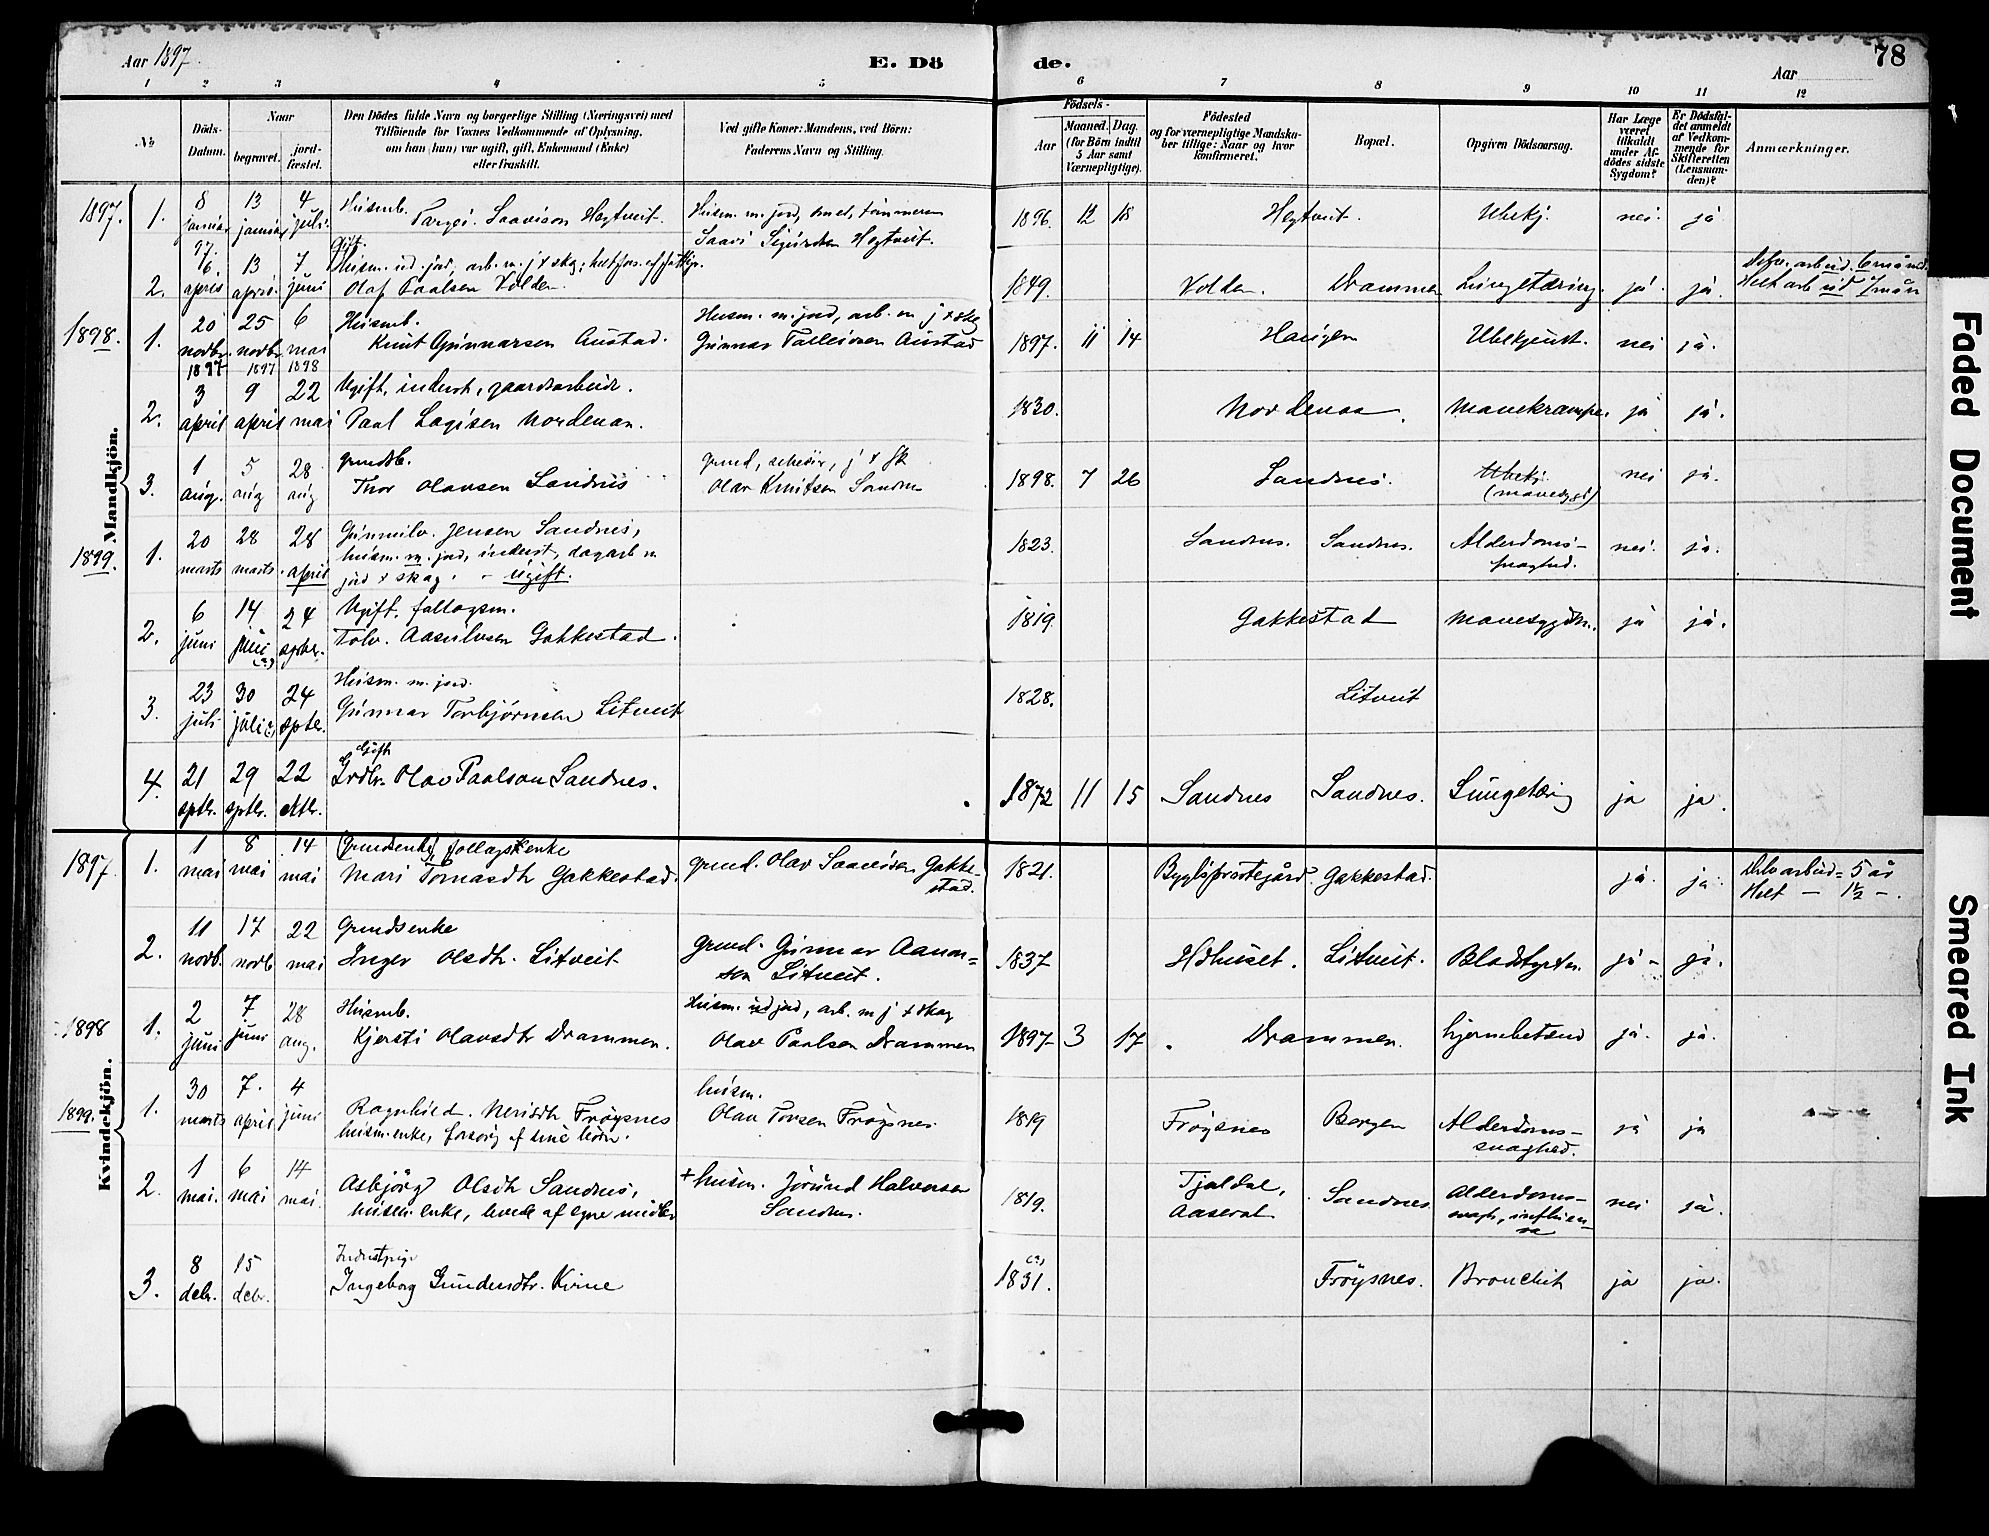 Aar 1897.
E. Dö
de.
Aar
78
1 2 3 4 5 6 7 8 9 10 11 12
No
Döds-
Datum.
Naar
begravet.
jord-
fæstet.
Den Dödes fulde Navn og borgerlige Stilling (Næringsvei) med
Tilföiende for Voxnes Vedkommende af Oplysning,
om han (hun) var ugift, gift, Enkemand (Enke)
eller fraskilt.
Ved gifte Koner: Mandens, ved Börn:
Faderens Navn og Stilling.
Födsels-
Aar
Maaned. Dag.
(for Börn indtil
5 Aar samt
Værnepligtige).
Födested
og for værnepligtige Mandska-
ber tillige: Naar og hvor
konfirmeret.
Bopæl.
Opgiven Dödsaarsag.
Har Læge
været
tilkaldt
under Af-
dödes sidste
Sygdom?
Er Dödsfal-
det anmeldt
af Vedkom-
mende for
Skifteretten
(Lensman-
den)?
Anmærkninger.
Mandkjön.
1897. 1. 8 januar 97. 13 januar 4 juli. Husmb.
Targei Saavison Hegtveit.
Husm. m. jord, smed, tömmerm
Saavi Sigurdsen Hegtveit.
1896 12 18 Hegtveit. Ubekj. nei. ja
2. 6. april 13 april 7 juni Gift.
Husm. ud. jord, arb. m. j + skog;
Olaf Paalsen Volden.
1849. Volden. Drammen Lungetæring. ja. ja.
Delv. arbud. 6 mdr.
Helt arb ud 7 mdn
1898. 1. 20 novbr. 1897 25 novbr. 1897 6 mai 1898 Husmb.
Knut Gunnarsen Austad.
Husm. m. jord, arb. m j + skog
Gunnar Talleivsen Austad
1897. 11 14 Haugen Ubekjendt. nei ja.
2. 3 april 9 april 22 mai Ugift, inderst, gaardsarbeide.
Paal Lagisen Nordenaa.
1830. Nordenaa. Mavekrampe. ja ja.
3. 1 aug. 5 aug 28 aug Grundsb.
Thor Olavsen Sandnes
grund, selveier, j + sk
Olav Knutsen Sandnes
1898. 7 26 Sandnes. Ubekj.
(mavesygd) nei ja.
1899. 1. 20 marts 28 marts. 28 april Gunnulv Jensen Sandnes,
husm. m. jord, inderst, dagarb m
jord + skog. - Ugift.
1823. Sandnes. Sandnes. Alderdoms-
svaghed. nei. ja.
2. 6 juni 14 juni (?) 24 septbr. Ugift, fallogsm.
Tolv Aasulvsen Gakkestad.
1819. Gakkestad Mavesygdm. ja ja.
3. 23 juli 30 juli (?) 24 septr. Husm. m. jord.
Gunnar Torbjörnsen Litveit
1828. Litveit
4. 21 septr. 29 septr. 22 oktr. Gift
Grdbr. Olav Paalson Sandnes.
1872 11 15 Sandnes Sandnes. Lungetæring ja ja.
Kvindekjön.
1897 1. 1 mai 8 mai 14 mai (Grundsenke), follagskenke
Mari Tomasdtr Gakkestad.
grund. Olav Saavisen Gakke-
stad.
1821. Byglandsprestegård Gakkestad. ja. ja.
Delv arbud = 5 år
Helt - 1½ -.
2. 11 novb. 17 novb 22 mai Grundsenke
Inger Olsdtr. Litveit
grund. Gunnar Aanon=
sen Litveit.
1837 Hdhuset. Litveit. Blodstyrtn. ja - ja.
1898 1. 2 juni 7 juni 28 aug. Husmb.
Kjersti Olavsdtr Drammen.
Husm. ud jord, arb. m j + skog
Olav Paalsen Drammen
1897 3 17 Drammen. hjernebetænd ja. ja.
1899. 1. 30 marts 7. april 4 juni
Ragnhild Nerisdtr Fröysnes
husm.enke, forsörg. af sine börn.
husm.
Olav Torsen Fröysnes
1819 Fröysnes Bergen Alderdoms-
svaghed. ja ja
2. 1 mai. 6 mai 14 mai Asbjörg Olsdtr Sandnes,
husm.enke, levede af egne midler
+ husm. Jörund Halvorsen
Sandnes.
1819. Tjaldal,
Aaseral Sandnes Alderdoms-
svagh, influen-
za nei ja.
3. 8 debr. 15 debr. Inderstpige
Ingeborg Gundersdtr. Kirne
(?)
1831. Fröysnes. Bronchit ja ja.
Faded Document
Smeared Ink